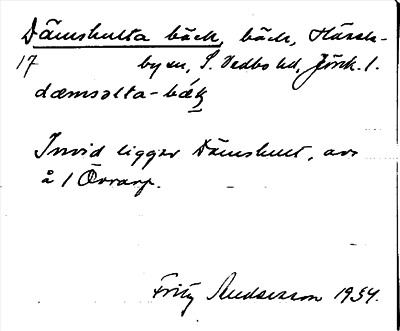 Dämshulta bäck, bäck, Hässle-
17 bysn, S. Vedbo hd, Jönk. l.
dæmsəlta-bæk
Invid ligger Dämshult, avs
å / Övrarp.
Fritz Andersson 1934.